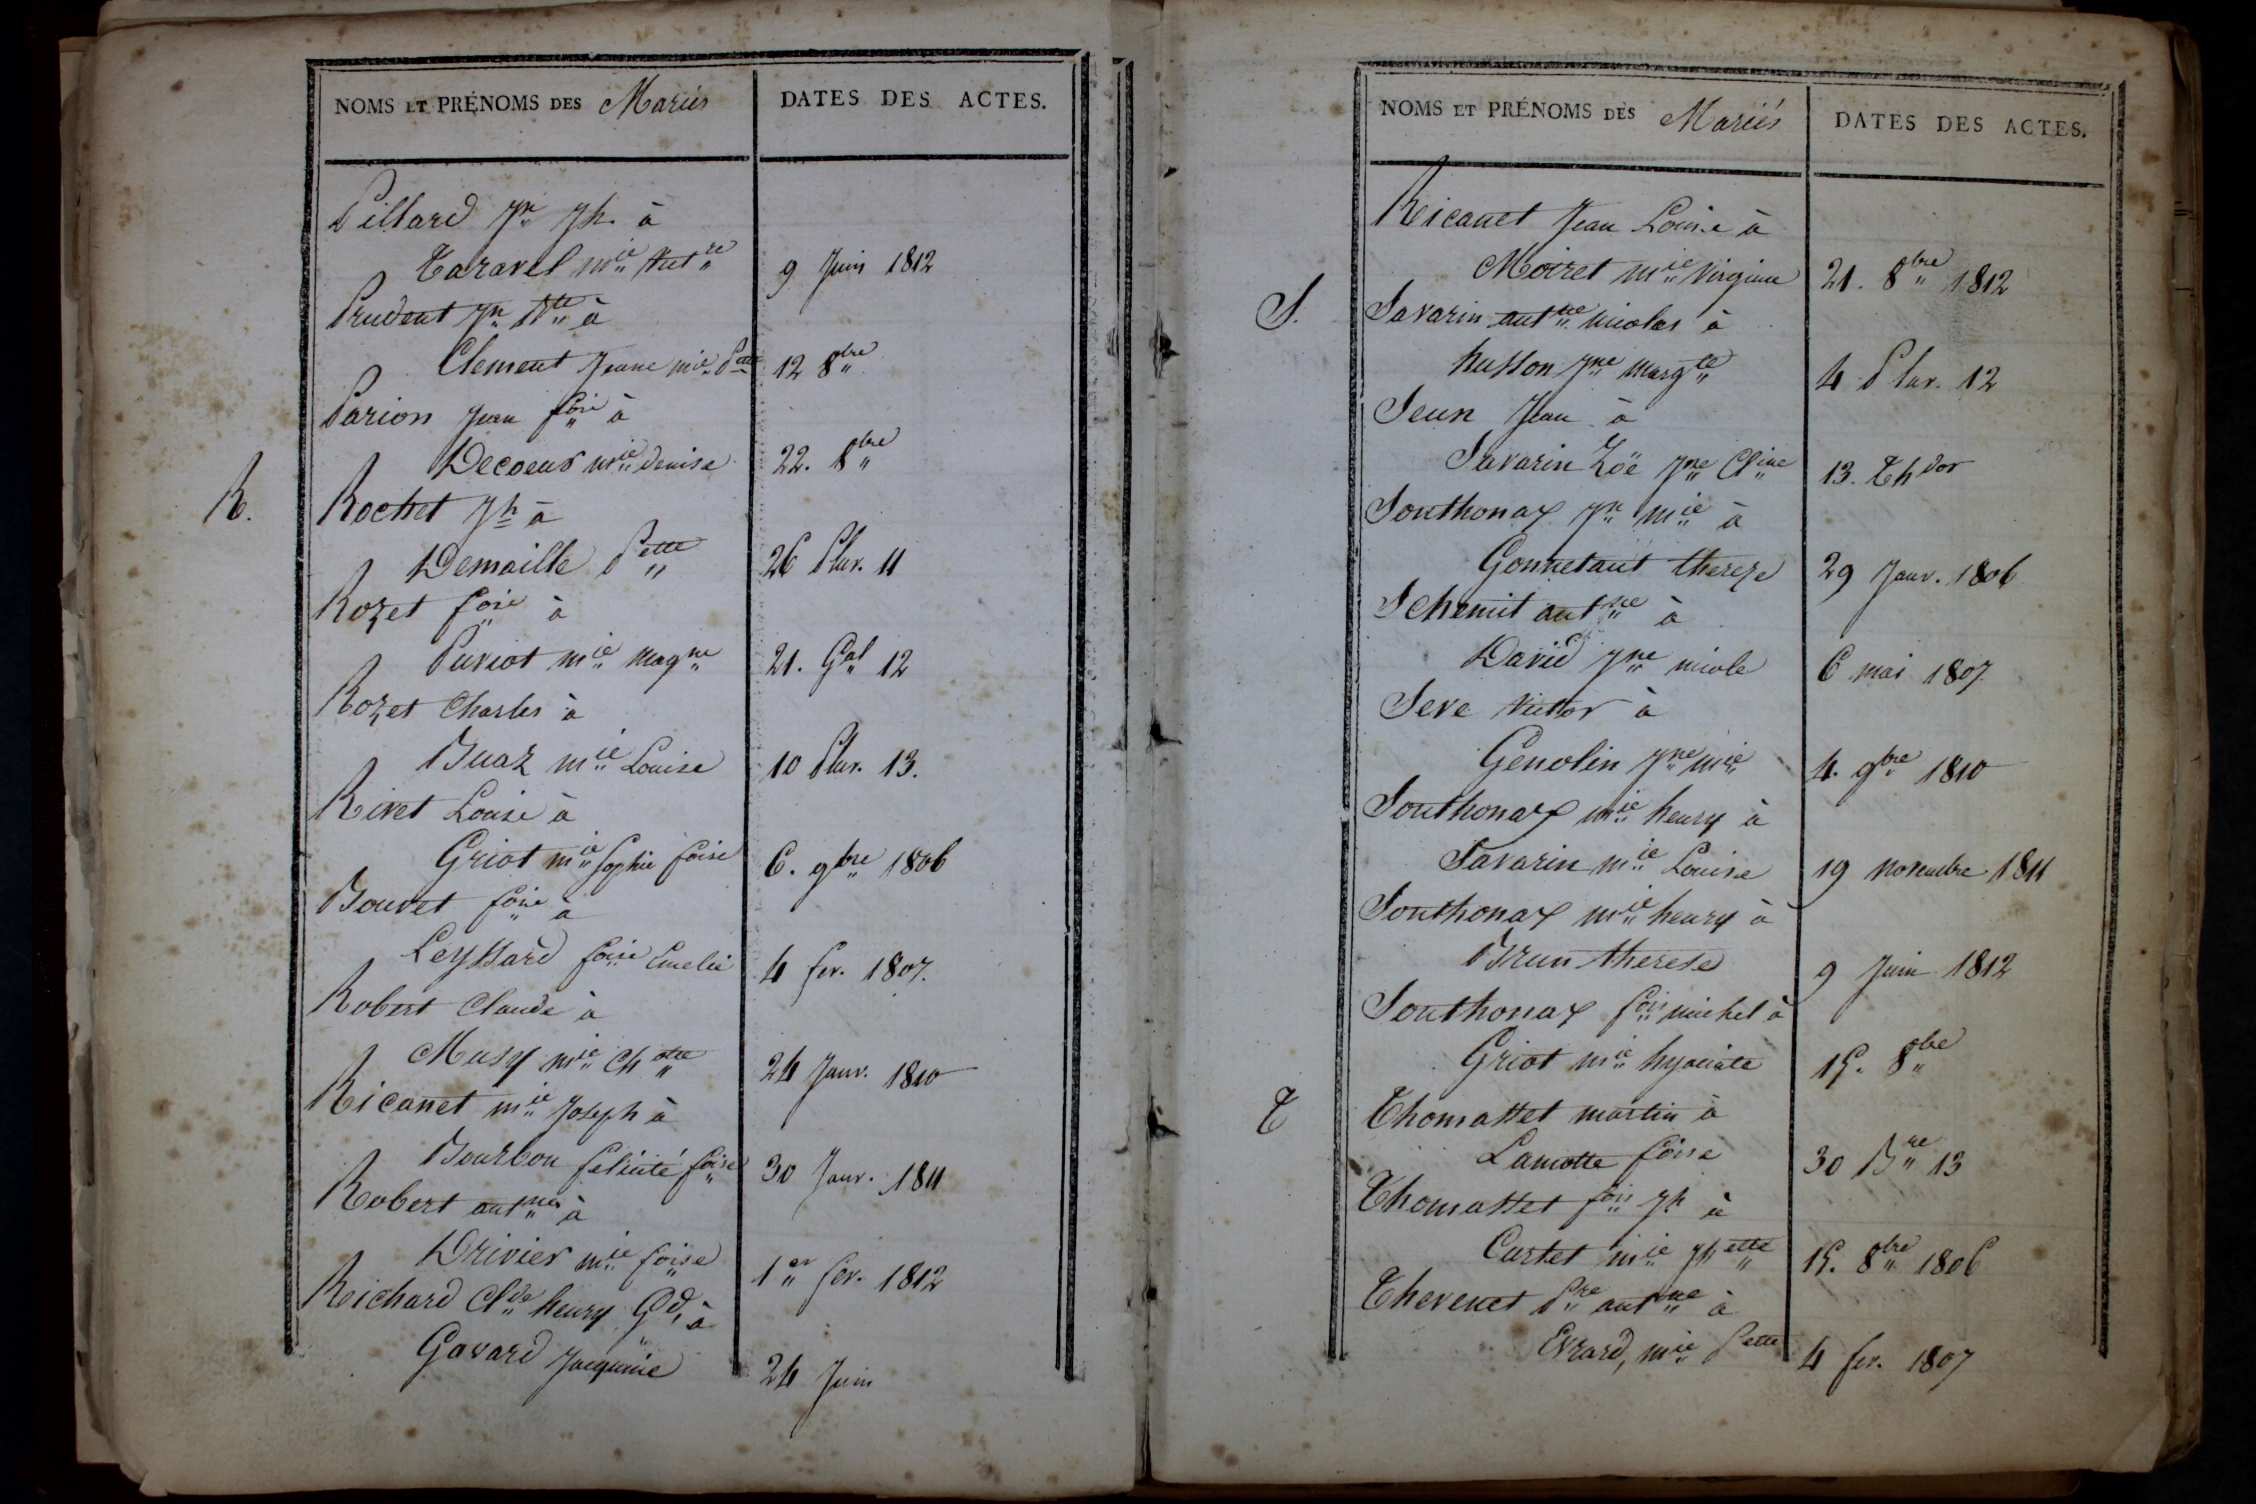 NOMS ET PRÉNOMS DES Mariés
DATES DES ACTES.
Pillard Jn Jh. à
Taravel mie Vict re 9 Juin 1812
Prudent Jn Bte à
Clement Jeanne mie Pette 12 8bre
Parion Jean fois à
Decoeur mie denise 22. 8bre
R.
Rochet Jh à
Demaille Pette 26 Pluv. 11
Rozet fois à
Puviot mie magne 21. Gal 12
Rozet Charles à
Buaz mie Louise 10 Pluv. 13.
Rivet Louis à
Griot mie Sophie foise 6. 9bre 1806
Bouvet fois à
Leyssard foise Emelie 4 fev. 1807.
Robert Claude à
Musy mie Chotte 24 Janv. 1810
Ricanet mie Joseph à
Bourbon felicité foise 30 Janv. 1811
Robert antne à
Drivier mie foise 1er fev. 1812
Richard Clde henry Gd. à
Gavard Jacquemie 24 Juin
NOMS ET PRÉNOMS DES Mariés
DATES DES ACTES.
Ricanet Jean Louis à
Moiret mie Virginie 21. 8bre 1812
S.
Savarin antne nicolas à
husson Jne margte 4 Pluv. 12
Seun Jean à
Savarin Zöé Jne Cline 13. Thdor
Southonax Jn mie à
Gonnetant thereze 29 Janv. 1806
Schemit antne à
David Jne nicole 6 mai 1807
Seve Victor à
Genolin Jne mie 4. 9bre 1810
Southonax mie henry à
Savarin mie Louise 19 novembre 1811
Southonax mie henry à
Brun therese 9 Juin 1812
Southonax fois michel à
Griot mie hyacinte 15. 8bre
T
Thomasset martin à
Lamotte foise 30 Bre 13
Thomasset fois Jh à
Curtet mie Jhette 15. 8bre 1806
Thevenet Pre antne à
Evrard, mie Pette 4 fev. 1807